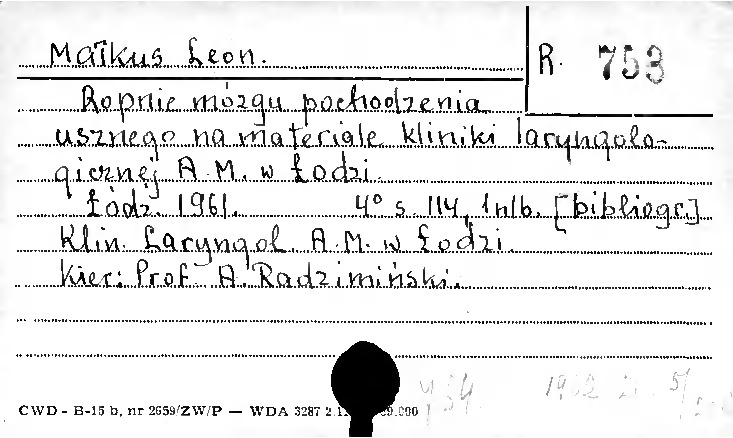 Malkus Leon.
R. 753
Ropnie mózgu pochodzenia
usznego na materiale kliniki laryngolo-
gicznej A.M. w Łodzi.
Łódź. 1961. 4° s. 114, 1 nlb. [bibliogr.]
Klin. Laryngol. A.M. w Łodzi.
Kier: Prof. A. Radzimiński.
CWD - B-15 b, nr 2659/ZW/P — WDA 3287